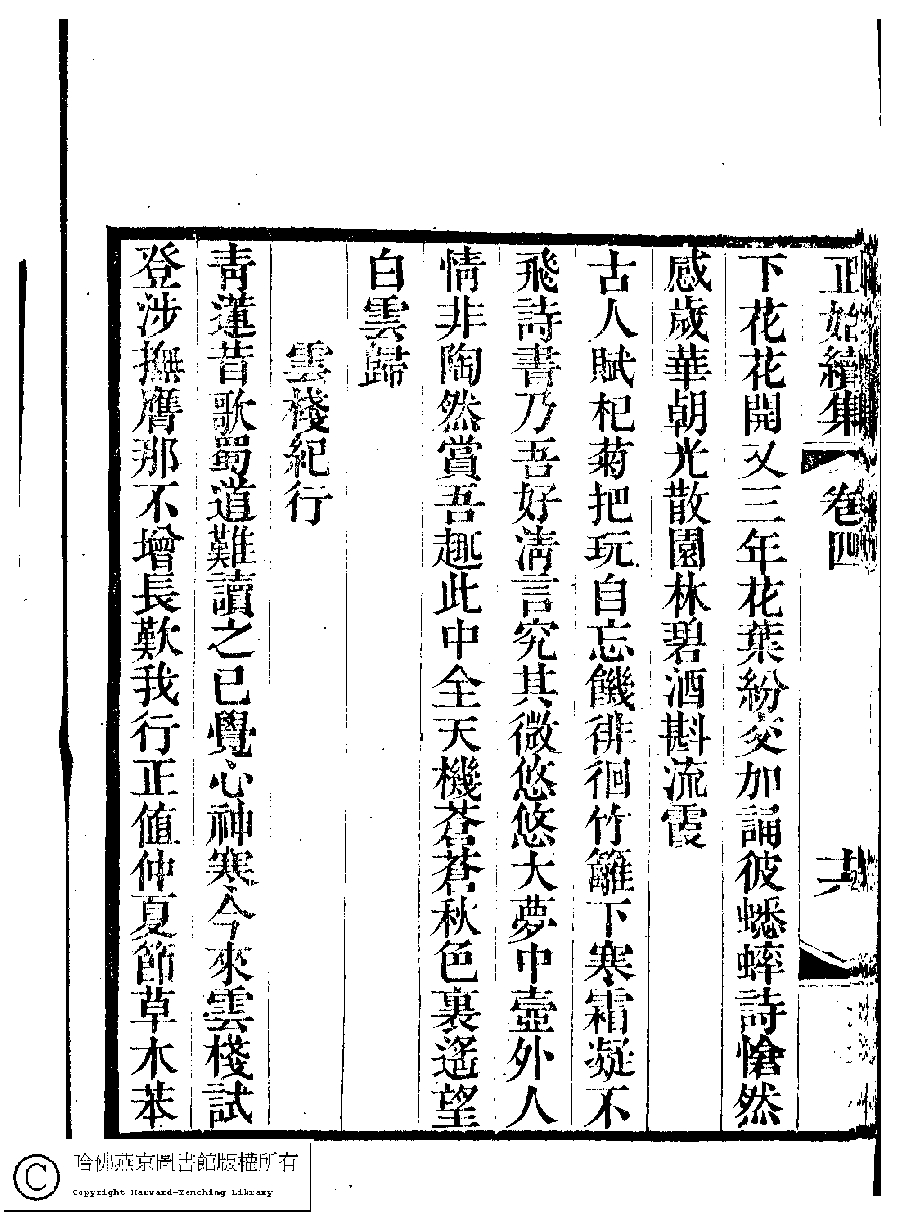 正始續集 卷四 共
下花花開又三年花葉紛交加誦彼蟋蟀詩愴然
感歲華朝光散園林碧酒斟流霞
古人賦杞菊把玩自忘饑徘徊竹籬下寒霜凝不
飛詩書乃吾好淸言究其微悠悠大夢中壺外人
情非陶然賞吾趣此中全天機蒼蒼秋色裏遙望
白雲歸
雲棧紀行
靑蓮昔歌蜀道難讀之已覺心神寒今來雲棧試
登涉撫膺那不增長歎我行正値仲夏節草木苯
哈佛燕京圖書館版權所有
Copyright Harvard-Yenching Library